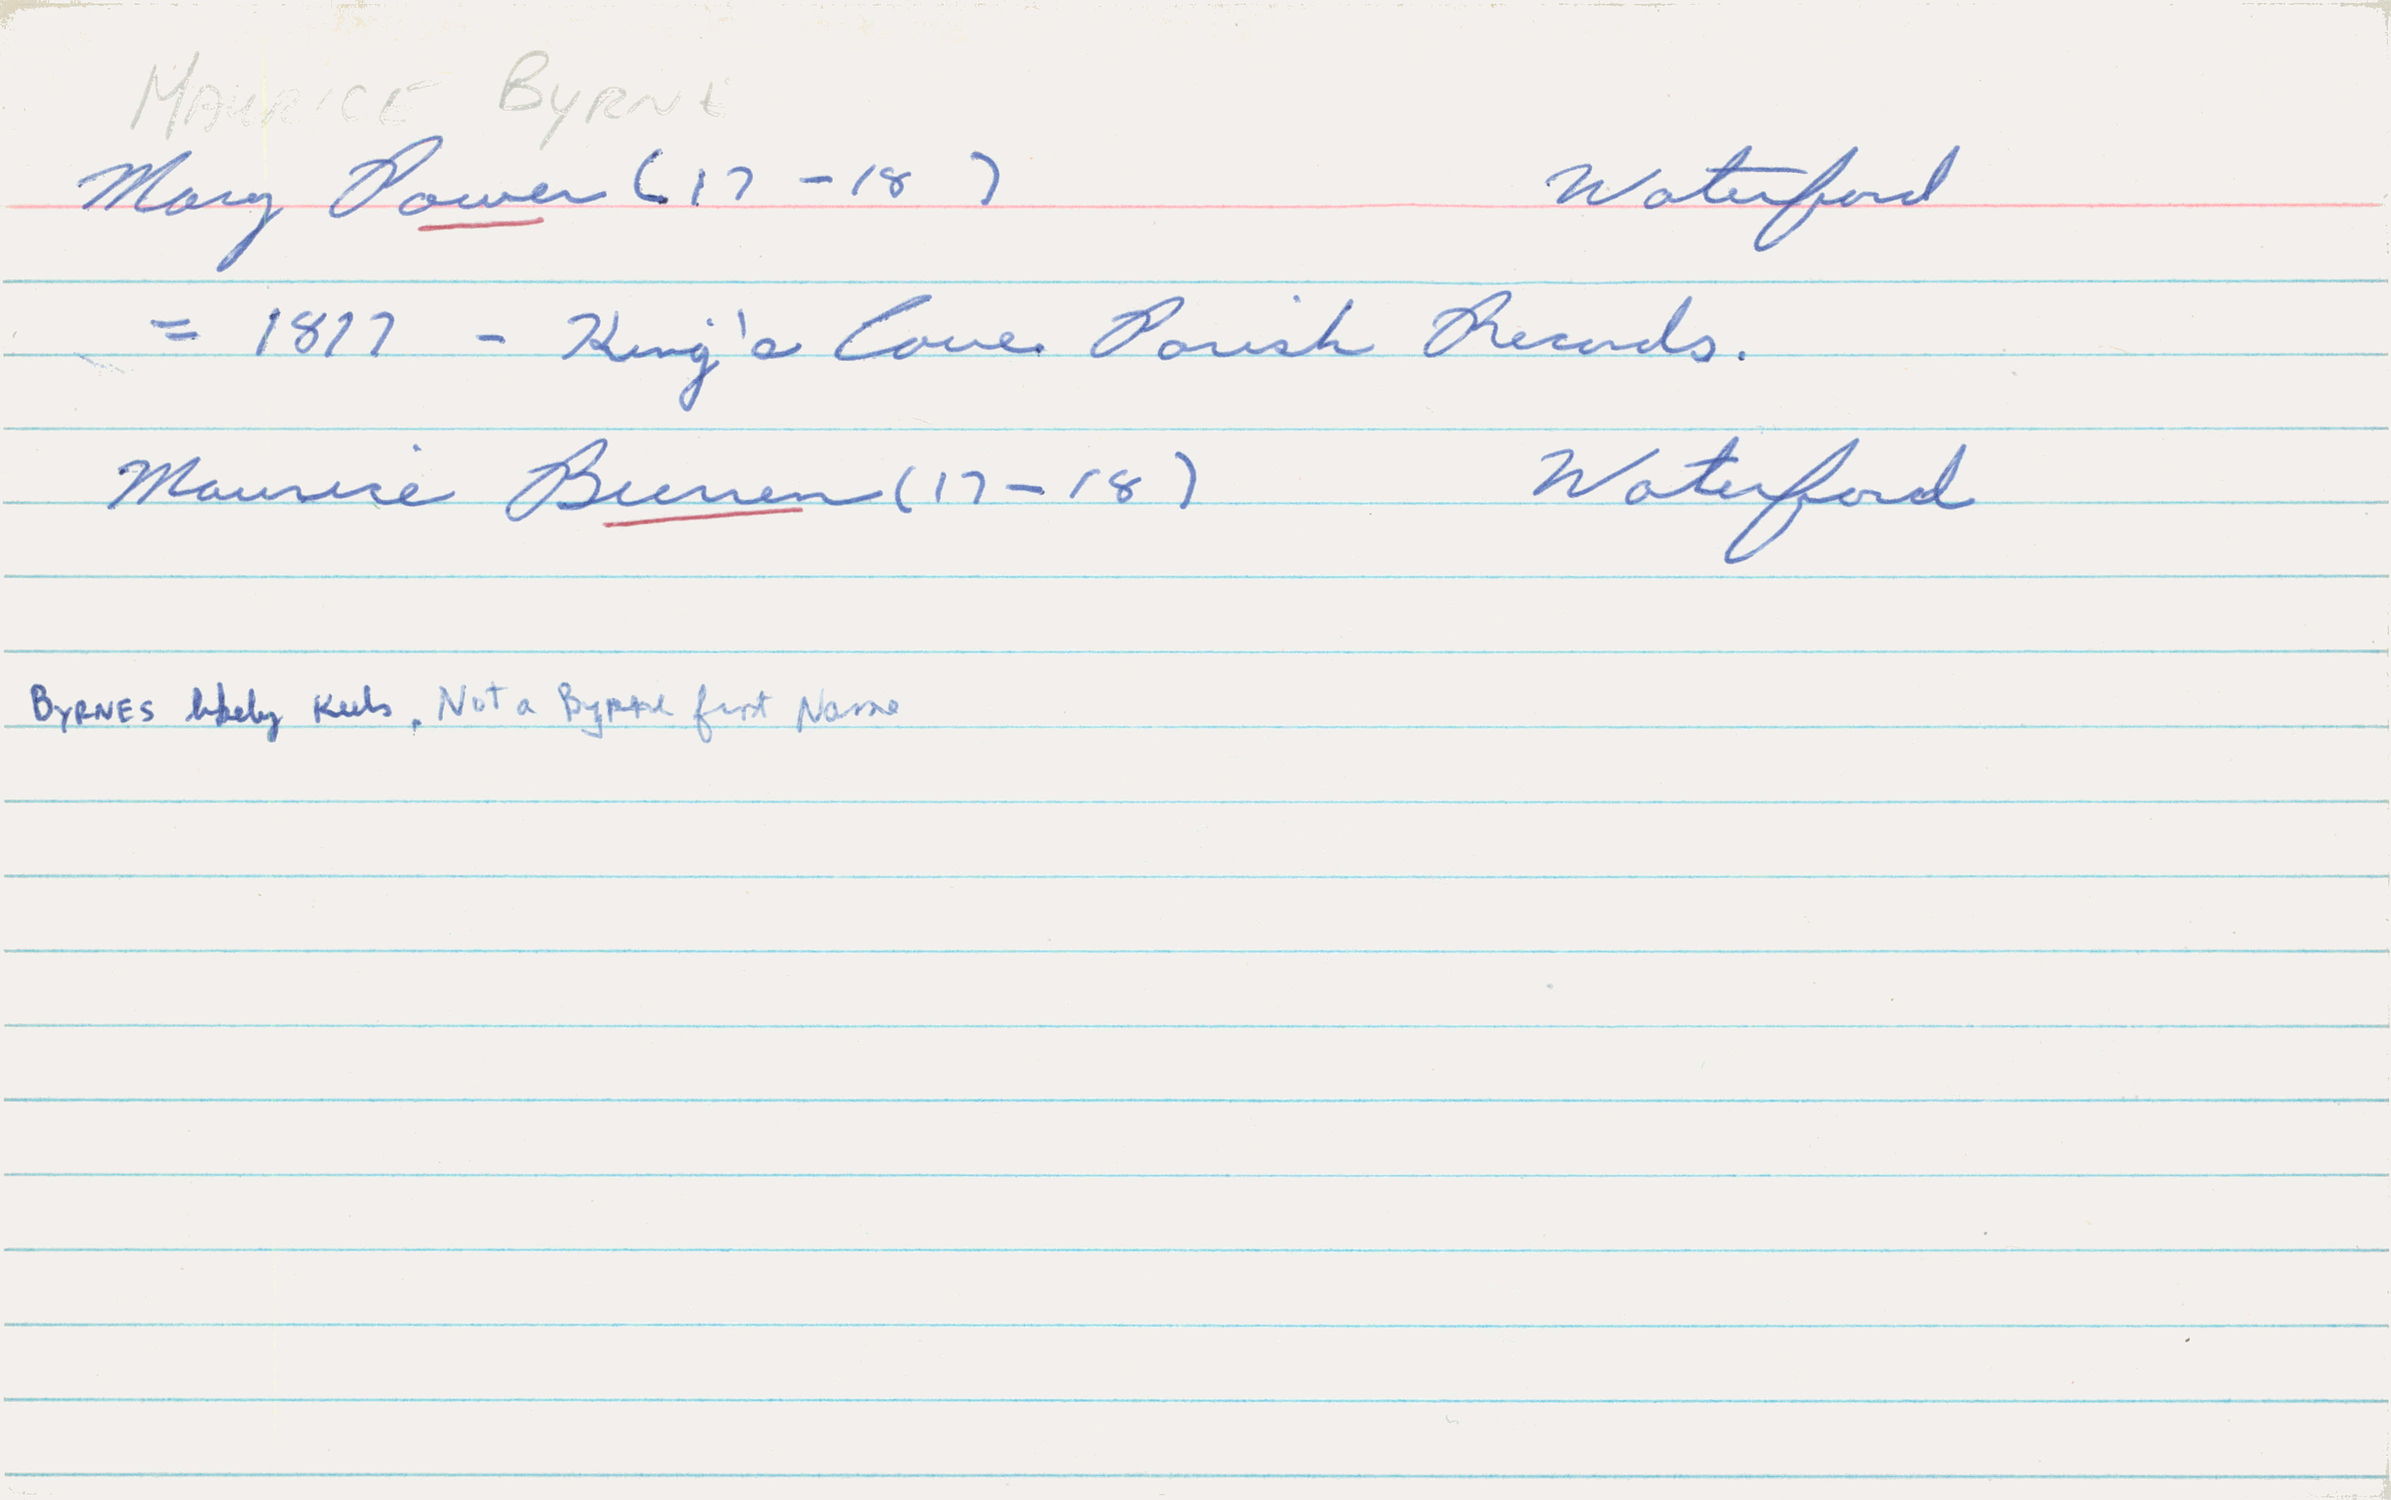 MAURICE BYRNE
Mary Power (17 - 18 ) Waterford
= 1817 - King's Cove Parish Records.
Maurice (17 - 18 ) Waterford
BYRNES likely Keels. Not a Byrne first Name